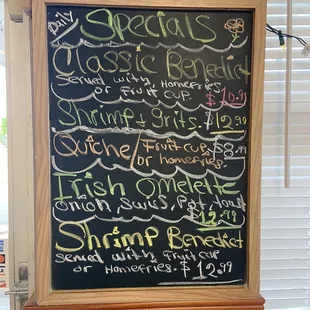 Daily Specials
Classic Benedict
Served with, Homefries,
or Fruit cup. $10.95
Shrimp & Grits. $12.99
Quiche/ Fruit cup $8.99
or homefries.
Irish Omelette
Onion, Swiss, Pot, toast
$12.99
Shrimp Benedict
Served with Fruit cup
or Homefries. $12.99